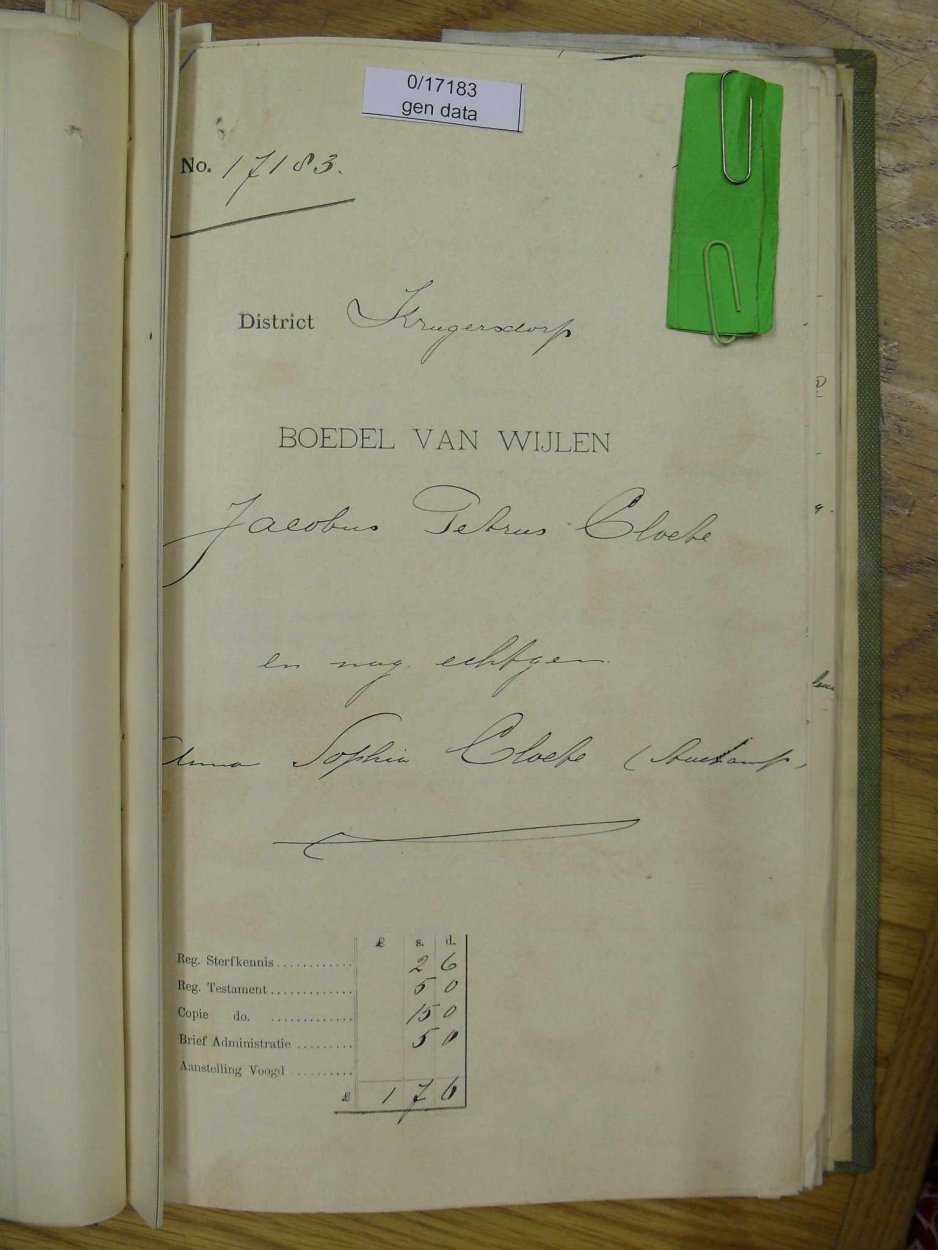 0/17183
gen data
No. 17183.
District Krugersdorp
BOEDEL VAN WIJLEN
Jacobus Petrus Cloete
en nag. echtgen.
Anna Sophia Cloete
£ s. d.
Reg. Sterfkennis............ 2 6
Reg. Testament............. 5 0
Copie do. ............. 15 0
Brief Administratie ......... 5 0
Aanstelling Voogd ..........
£ 1 7 6